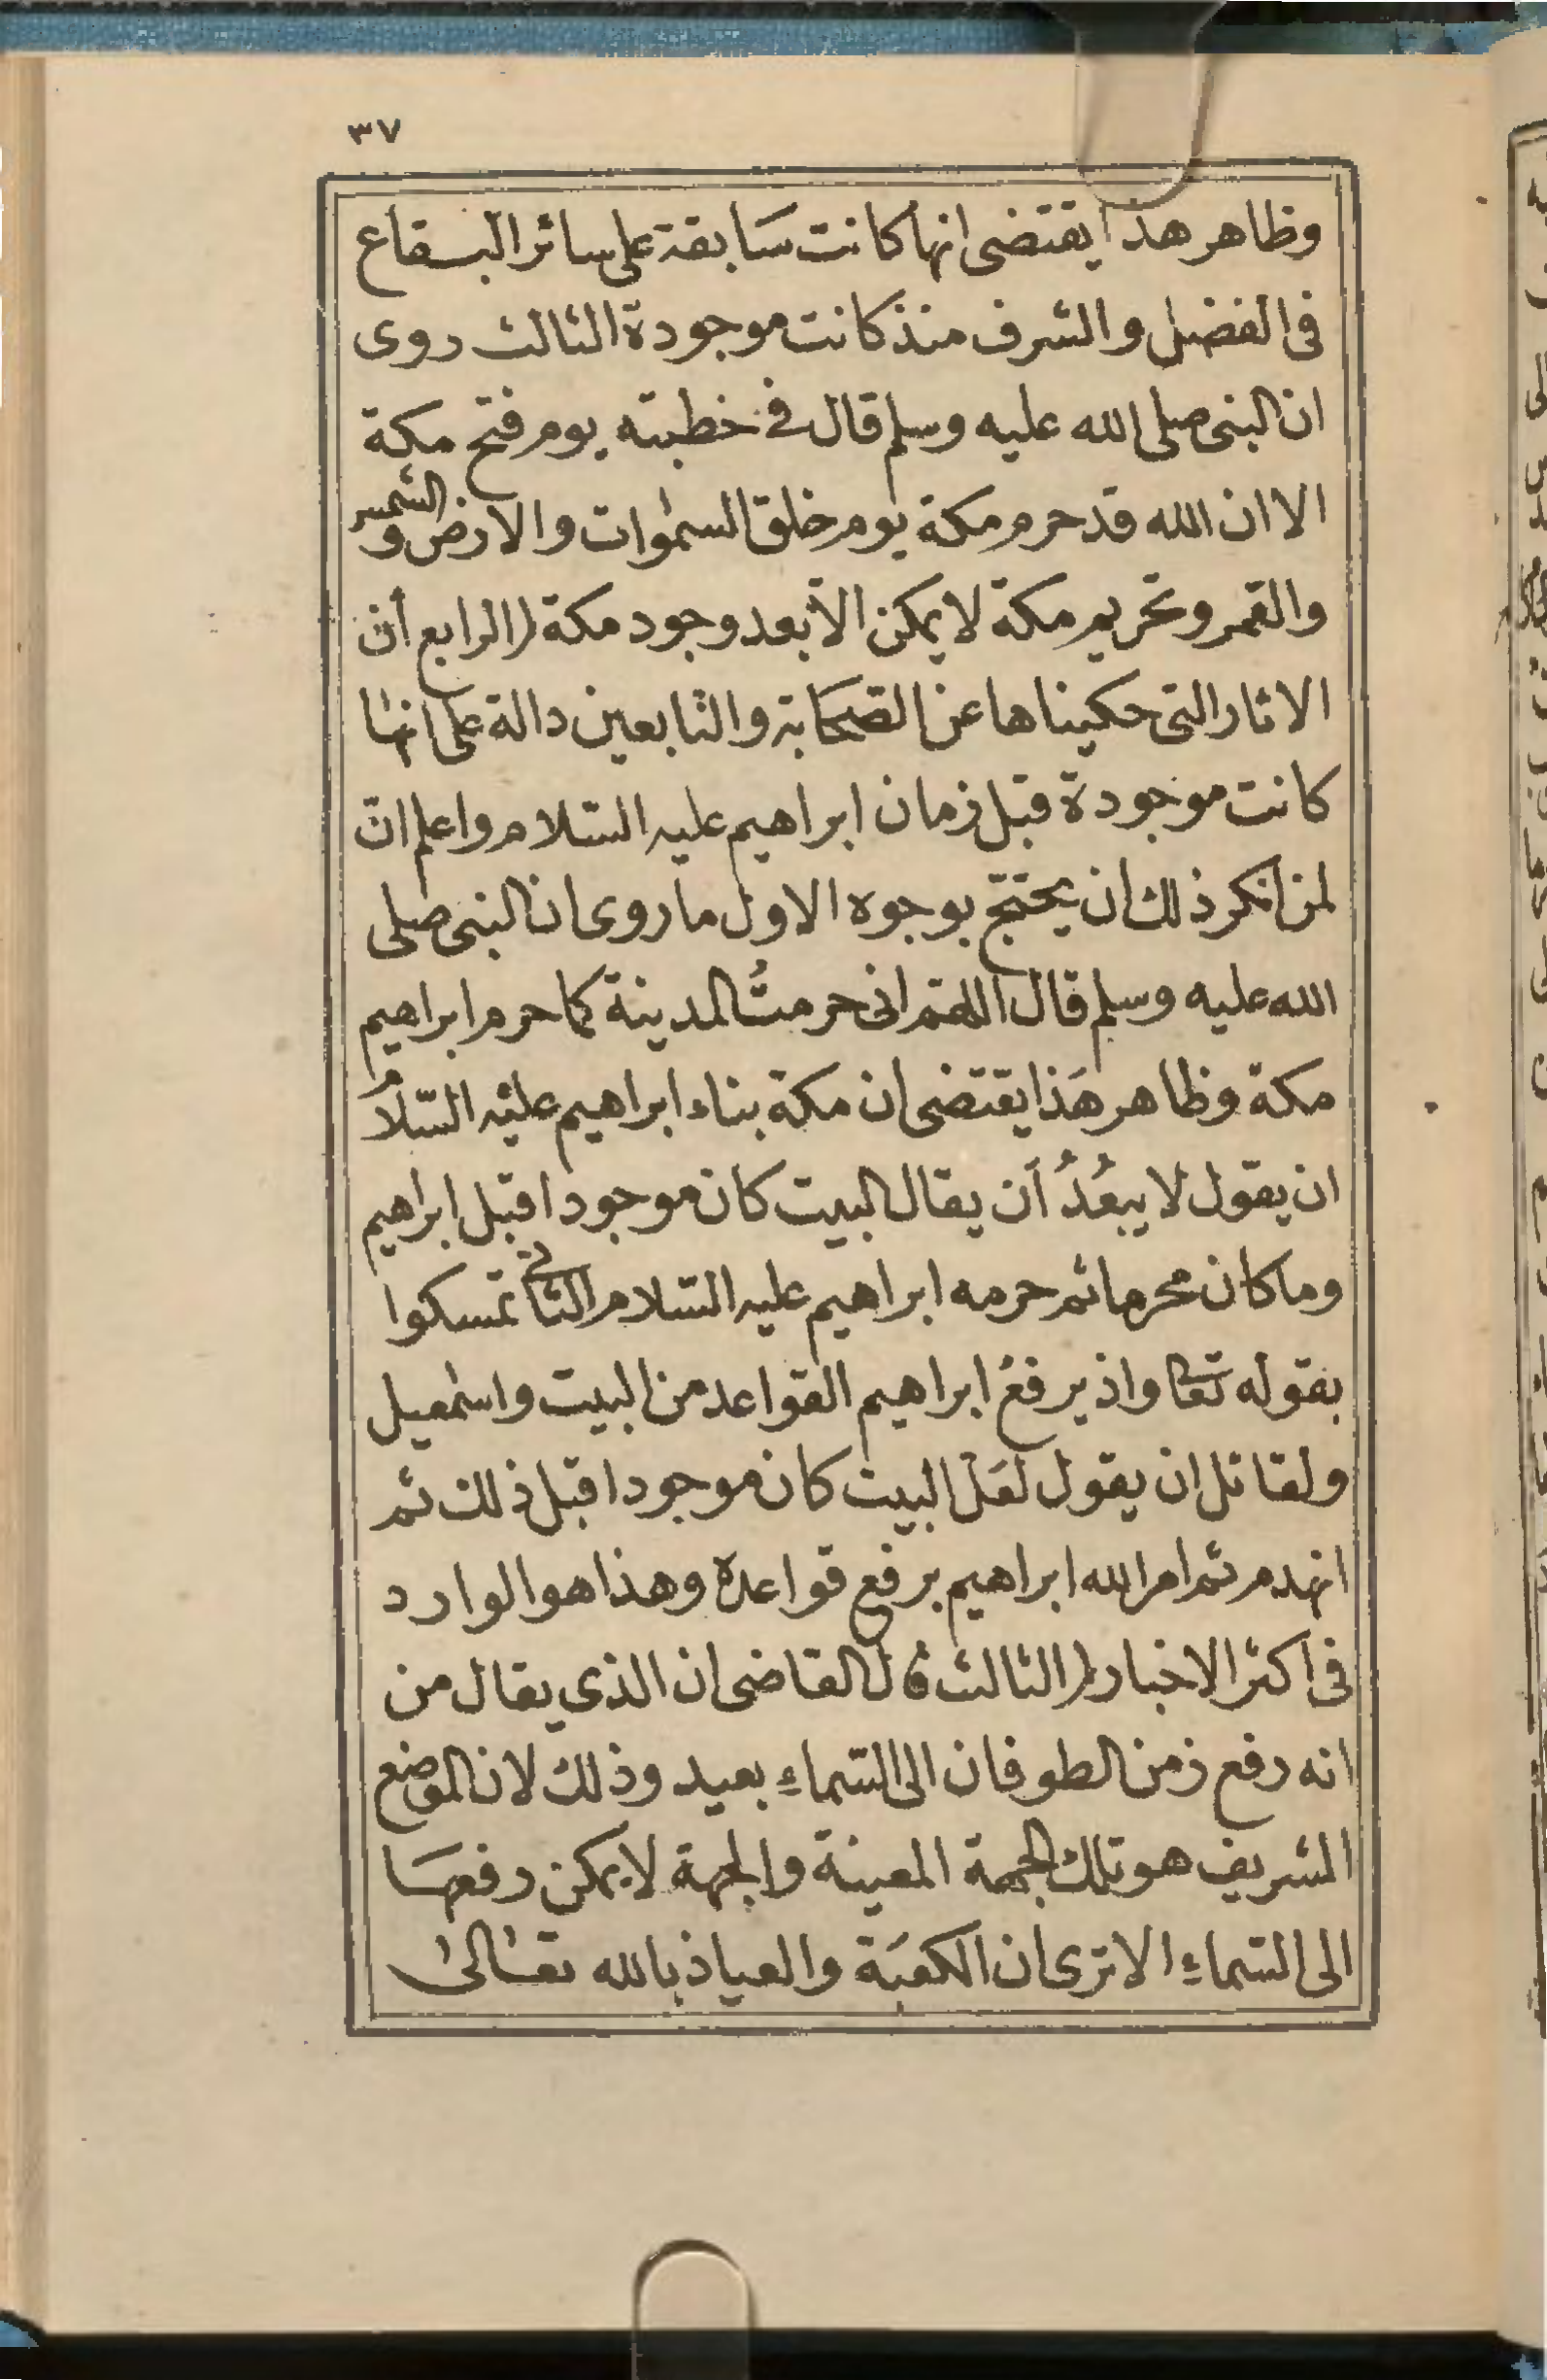 ٣٧
وظاهر هذا يقتضى انها كانت سَابقة على سائر البقاع
فى الفضل والشرف منذ كانت موجودة الثالث روى
ان النبى صلى الله عليه وسلم قال فى خطبته يوم فتح مكة
الا ان الله قد حرم مكة يوم خلق السمٰوات والارض والشمس
والقمر وتحريم مكة لا يمكن الا بعد وجود مكة الرابع أن
الاثار التى حكيناها عن الصّحَابة والتابعين دالة على انها
كانت موجودة قبل زمان ابراهيم عليه السّلام واعلم انّ
لمن انكر ذلك ان يحتجّ بوجوه الاول ما روى ان النبى صلى
الله عليه وسلم قال اللهّم انى حرمتُ المدينة كما حرم ابراهيم
مكة وظاهر هَذا يقتضى ان مكة بناء ابراهيم عليْه السّلام
ان يقول لا يبعُدُ أن يقال البيت كان موجودا قبل ابراهيم
وما كان محرما ثم حرمه ابراهيم عليه السّلام الثانى تمسكوا
بقوله تعا واذ يرفعُ ابراهيم القواعد من البيت واسمٰعيل
ولقائل ان يقول لعَل البيت كان موجودا قبل ذلك ثم
انهدم ثم امر الله ابراهيم برفع قواعده وهذا هو الوارد
فى اكثر الاخبار الثالث قال القاضى ان الذى يقال من
انه رفع زمن الطوفان الى السّماءِ بعيد وذلك لان الموضع
الشريف هو تلك الجهة المعينة والجهة لا يمكن رفعهَا
الى السّماءِ الا ترى ان الكعبَة والعياذ بالله تعَالىٰ